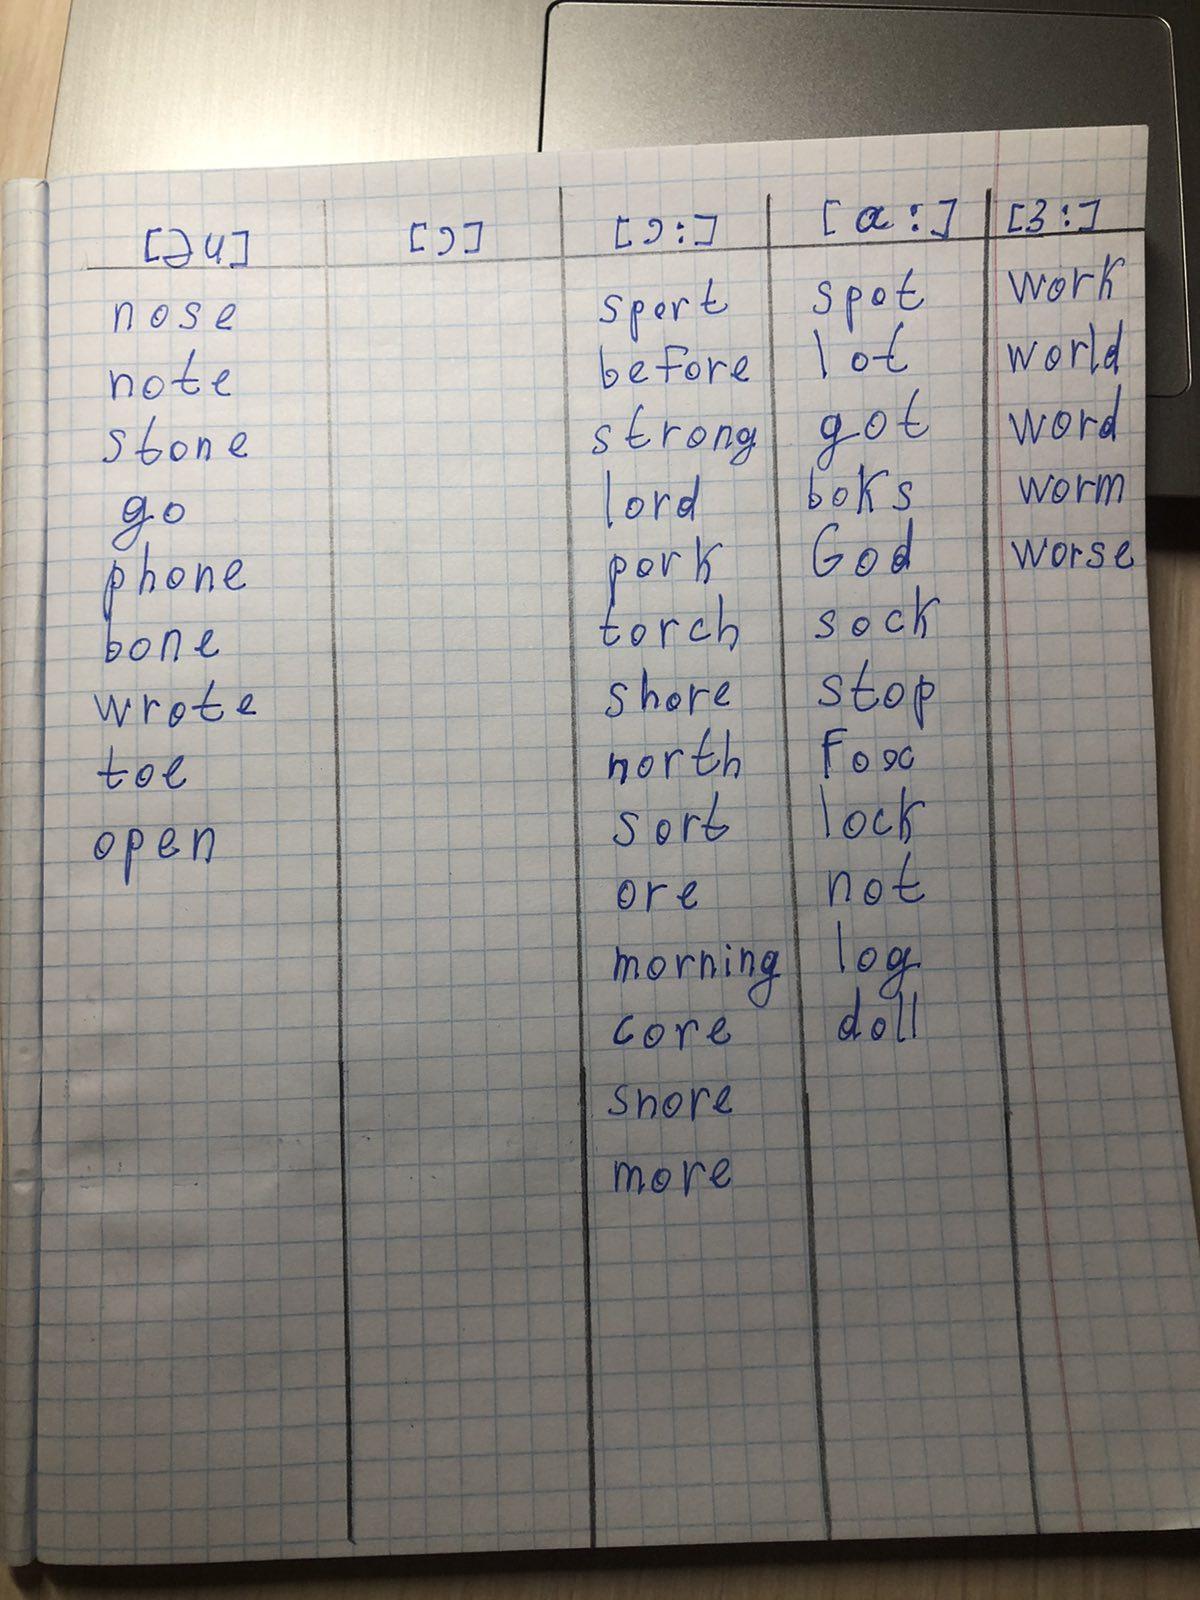 [əu] [ɔ] [ɔ:] [ɑ:] [ɜ:]
nose sport spot work
note before lot world
stone strong got word
go lord boks worm
phone pork God worse
bone torch sock
wrote shore stop
toe north fox
open sort lock
ore not
morning log
core doll
snore
more